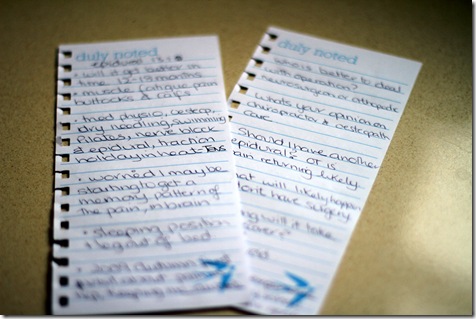 duly noted
epidural 13.1
• will it get better in
time 12-18 months
• muscle fatigue pain
buttocks & calfs
• tried physio, osteop,
dry needling, swimming
pilates, nerve block
& epidural, traction
holiday in heat
• worried I may be
starting to get a
memory pattern of
the pain, in brain
• sleeping position
& leg out of bed
• 2009 autumn
about
keeping
duly noted
who is better to deal
with operation?
neurosurgeon or orthopedic
whats your opinion on
chiropractor & osteopath
care
Should I have another
epidural? or is
pain returning likely
what will likely happen
don't have surgery
long will it take
recover?